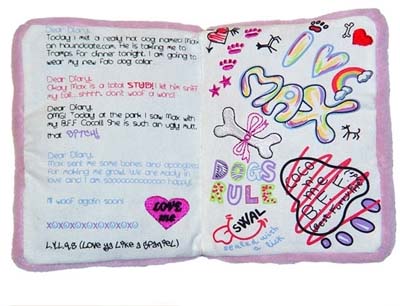 Dear Diary,
Today I met a really hot dog named Max
on hounddate.com. He is taking me to
Tramps for dinner tonight. I am going
to wear my new Fab dog collar...
Dear Diary,
Okay Max is a total STUD! I let him sniff
my tail... shhhh, don't woof a word!
Dear Diary,
OMG! Today at the park I saw Max with
my B.F.F Coco!!! She is such an ugly mutt,
that BITCH!
Dear Diary,
Max sent me some bones and apologized
for making me growl. We are madly in
love and I am soooooooooooooo happy!
I'll woof again soon!
XOXOXOXOXOXOXO
L.Y.L.A.S (Love ya Like a Spaniel)
Love
me
I
MAX
DOGS
RULE
SWAL
sealed with a lick
COCO
'n'
me
B.F.F